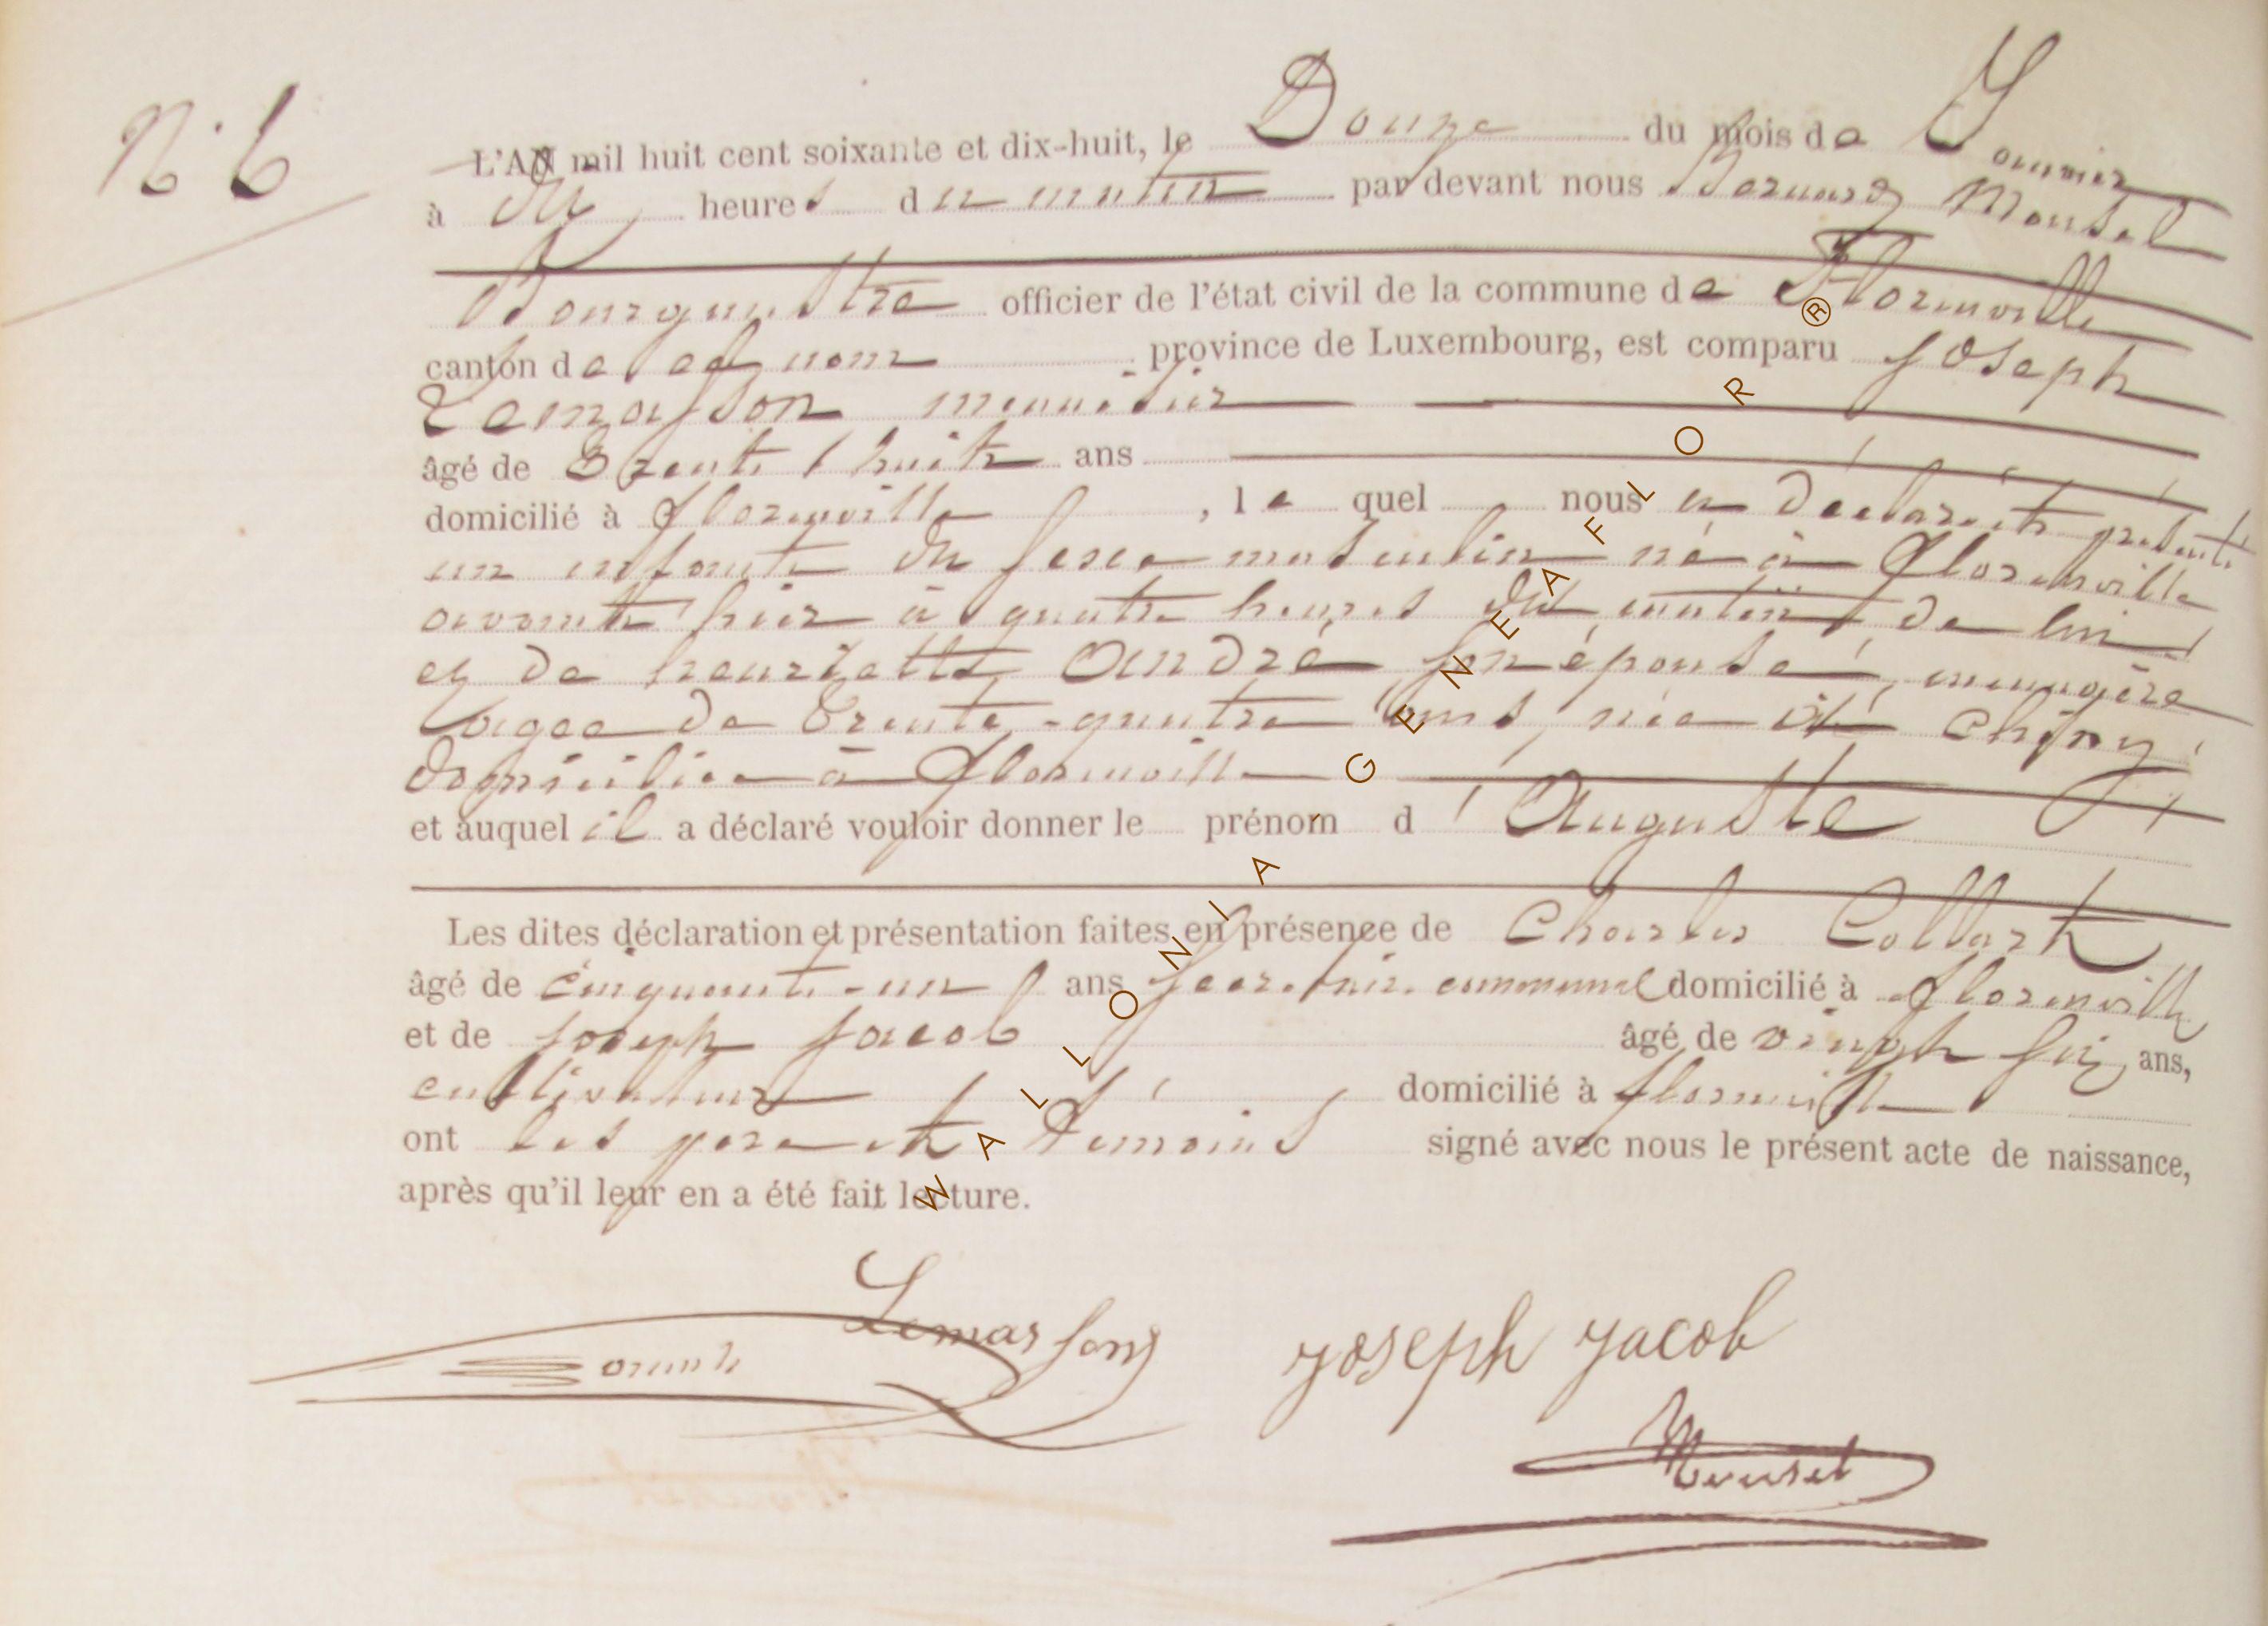 N° 6
L'AN mil huit cent soixante et dix-huit, le Douze du mois de Janvier
à dix heures du matin par devant nous Bernard Mousel
Bourgmestre officier de l'état civil de la commune de Florenville
canton de ce nom province de Luxembourg, est comparu Joseph
Lemasson menuisier
âgé de Trente huit ans
domicilié à florenville, le quel nous a déclaré et présenté
un enfant du sexe masculin né à florenville
avant hier à quatre heures du matin de lui
et de henriette André son épouse, ménagère
agee de Trente-quatre ans, née à Chiny
domiciliée à florenville
et auquel il a déclaré vouloir donner le prénom d'Auguste
Les dites déclaration et présentation faites en présence de Charles Collart
âgé de cinquante-un ans secrétaire communal domicilié à florenville
et de joseph jacob âgé de vingt six ans,
cultivateur domicilié à florenville
ont les pere et témoins signé avec nous le présent acte de naissance,
après qu'il leur en a été fait lecture.
Lemasson
joseph jacob
Mousel
WALLONIA GENEAFLOR ®